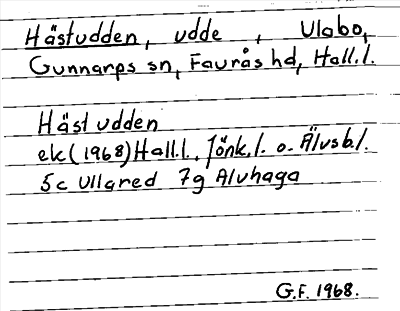 Hästudden, udde, Ulabo,
Gunnarps sn, Faurås hd, Hall.l.
Häst udden
ek(1968)Hall.l., Jönk.l. o. Älvsb.l.
5c Ullared 7g Älvhaga
G.F. 1968.